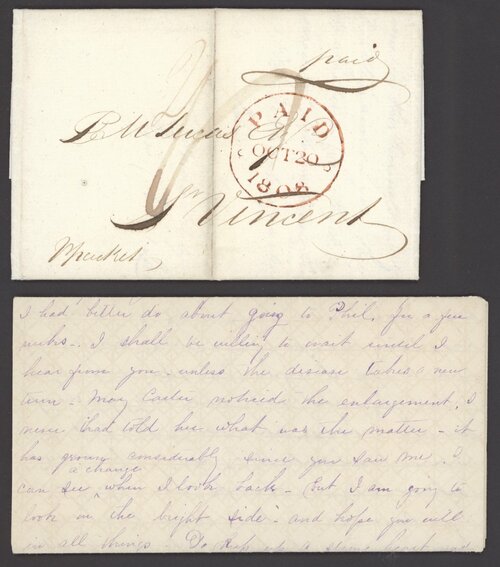 paid
PAID
OCT 20
1808
R W Lucas Esqr
St Vincent
P packet
I had better do about going to Phil. for a few
weeks - I shall be willing to wait until I
hear from you - unless the disease takes a new
turn - May Carter noticed the enlargement, I
never had told her what was the matter - it
has grown considerably since you saw me. I
a change
can see when I look back - But I am going to
look on "the bright side" and hope you will
in all things - Do keep up a strong heart